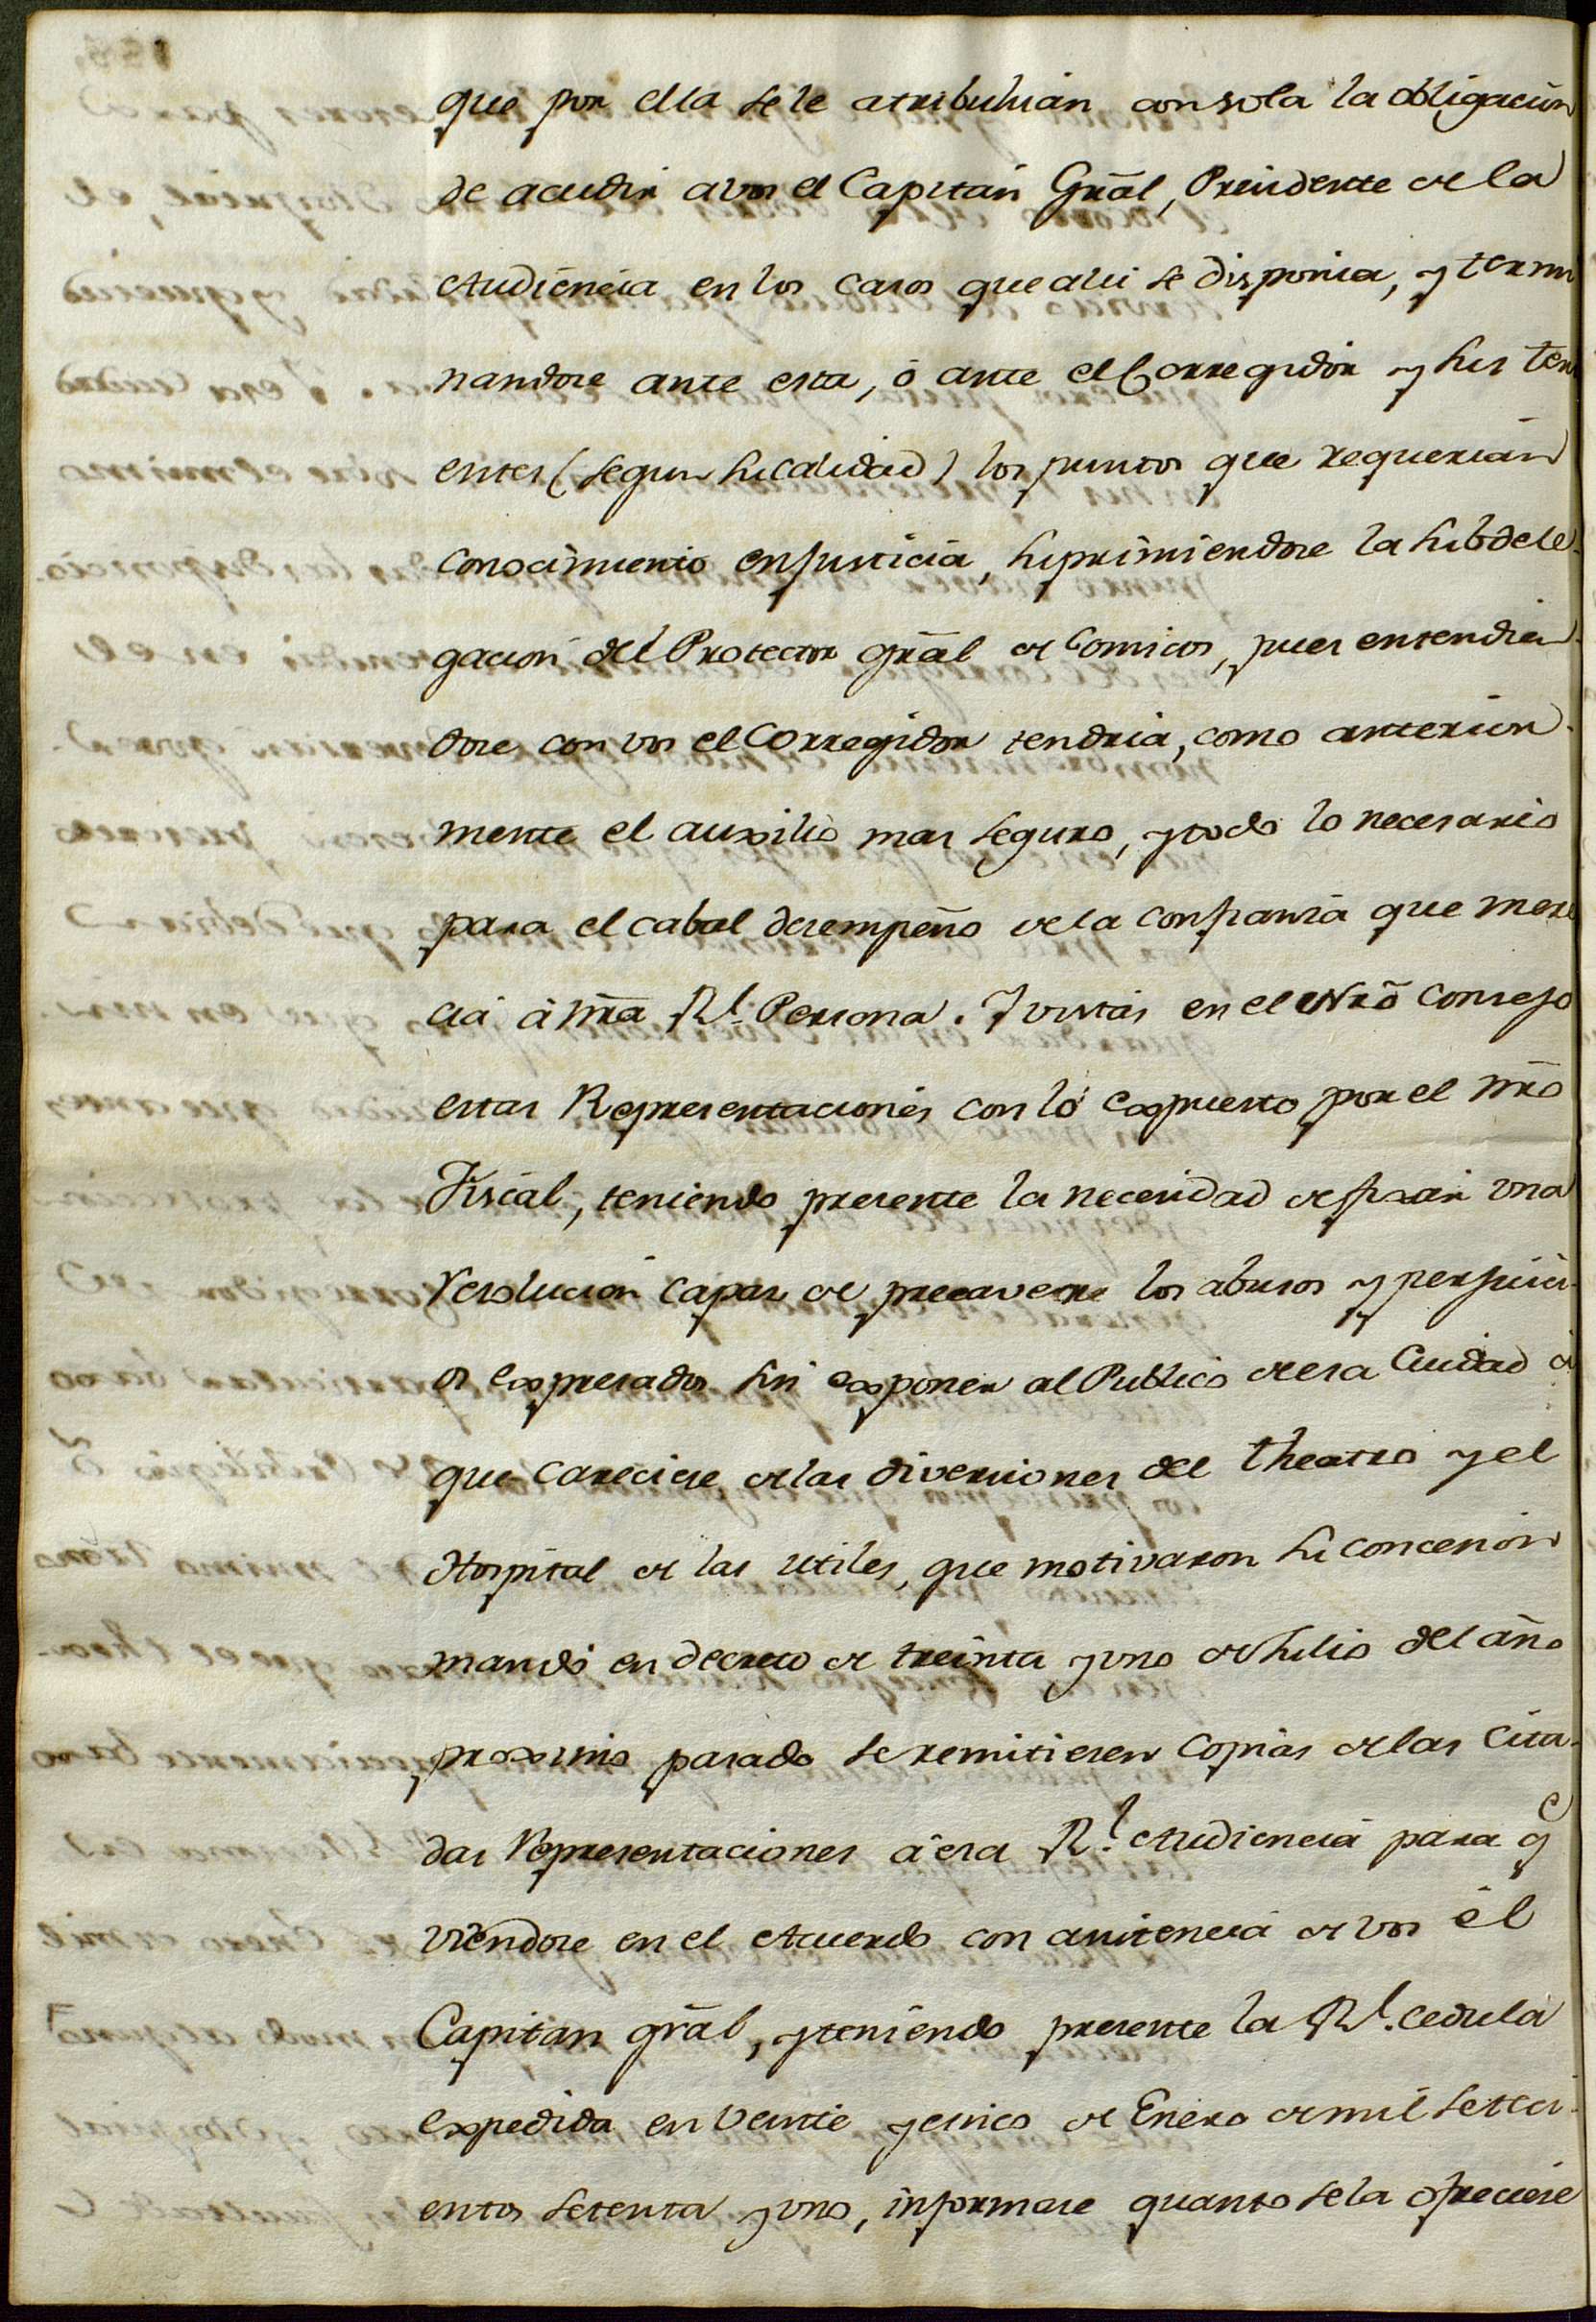 que por ella se le atribuhian con sola la obligacion
de acudir a vos el Capitan Grāl, Presidente de la
Audiencia en los casos que alli se disponia, y termi
nandose ante esta, ó ante el Corregidor y sus teni
entes (segun su calidad) los puntos que requerian
conocimiento en Justicia, suprimiendose la subdele-
gacion del Protector grāl de Comicos, pues entendien-
dose con vos el Corregidor tendria, como anterior-
mente el auxilio mas seguro, y todo lo necesario
para el cabal desempeño de la confianza que mere
cia à nrā Rl. Persona. Y vistas en el Nrō Consejo
estas Representaciones con lo expuesto por el nrō
Fiscal, teniendo presente la necesidad de fixar una
resolucion capaz de precaverse los abusos y perjuici-
os expresados sin exponer al Publico de esa Ciudad à
que careciese de las diversiones del theatro y el
Hospital de las utiles, que motivaron su concesion
mandó en decreto de treinta y uno de Julio del año
proximo pasado se remitiesen copias de las cita-
das representaciones à esa Rl. Audiencia para qe
viendose en el Acuerdo con asistencia de vos el
Capitan grāl, y teniendo presente la Rl. cedula
expedida en veinte y cinco de Enero de mil seteci-
entos setenta y uno, informase quanto se la ofreciese